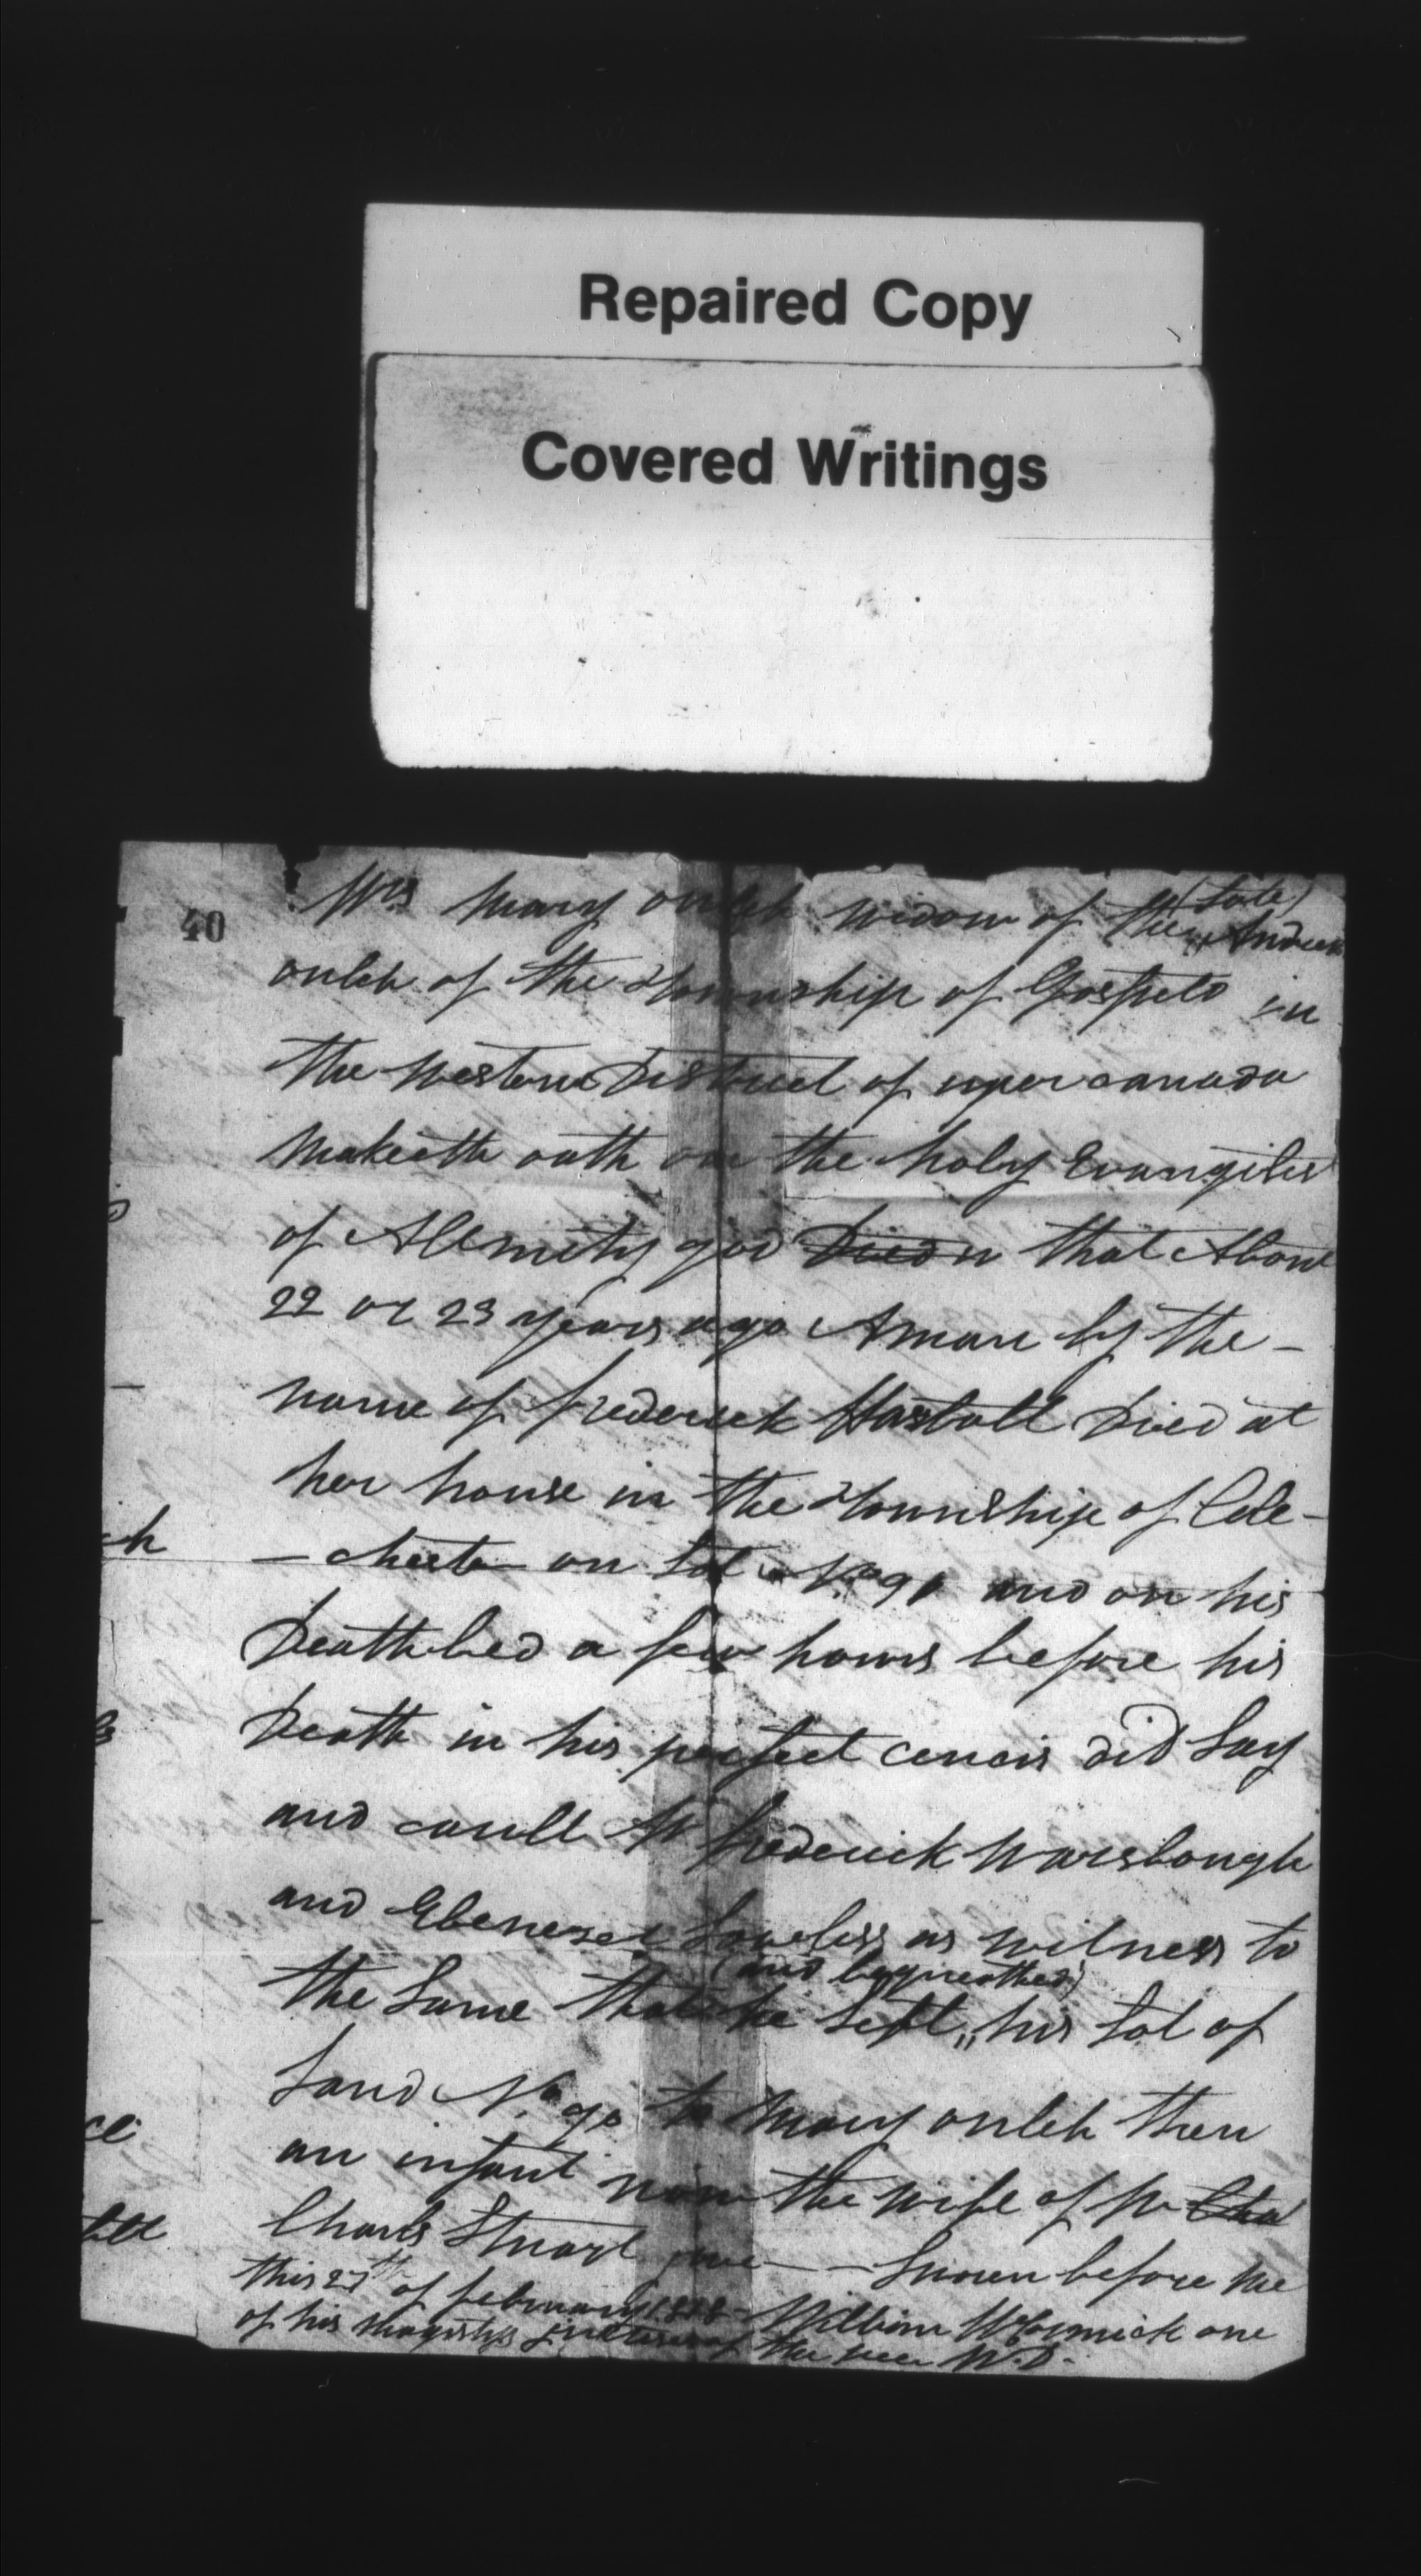 Repaired Copy
Covered Writings
40
Mrs mary onlch widow of the (Late) Andrew
onlch of the Township of Gosfield in
the western District of uper canada
Maketh oath on the holy Evangiles
of Allmity god that About
22 or 23 years ago A man by the -
name of frederick Hasball Died at
her house in the Township of Col-
- chester on Lot No 90 and on his
Death bed a few hours before his
Death in his perfect cencis did Say
and caull Mr frederick warsbough
and Ebenezer Loveless as witness to
(and bequeathed)
the Same that he left his Lot of
Land No 90 to mary onlch then
an infant now the wife of Mr Cha
Charls Stuart - Sworn before me
this 27th of february 1818 - William McCormick one
of his magistys of the W.D.
ch